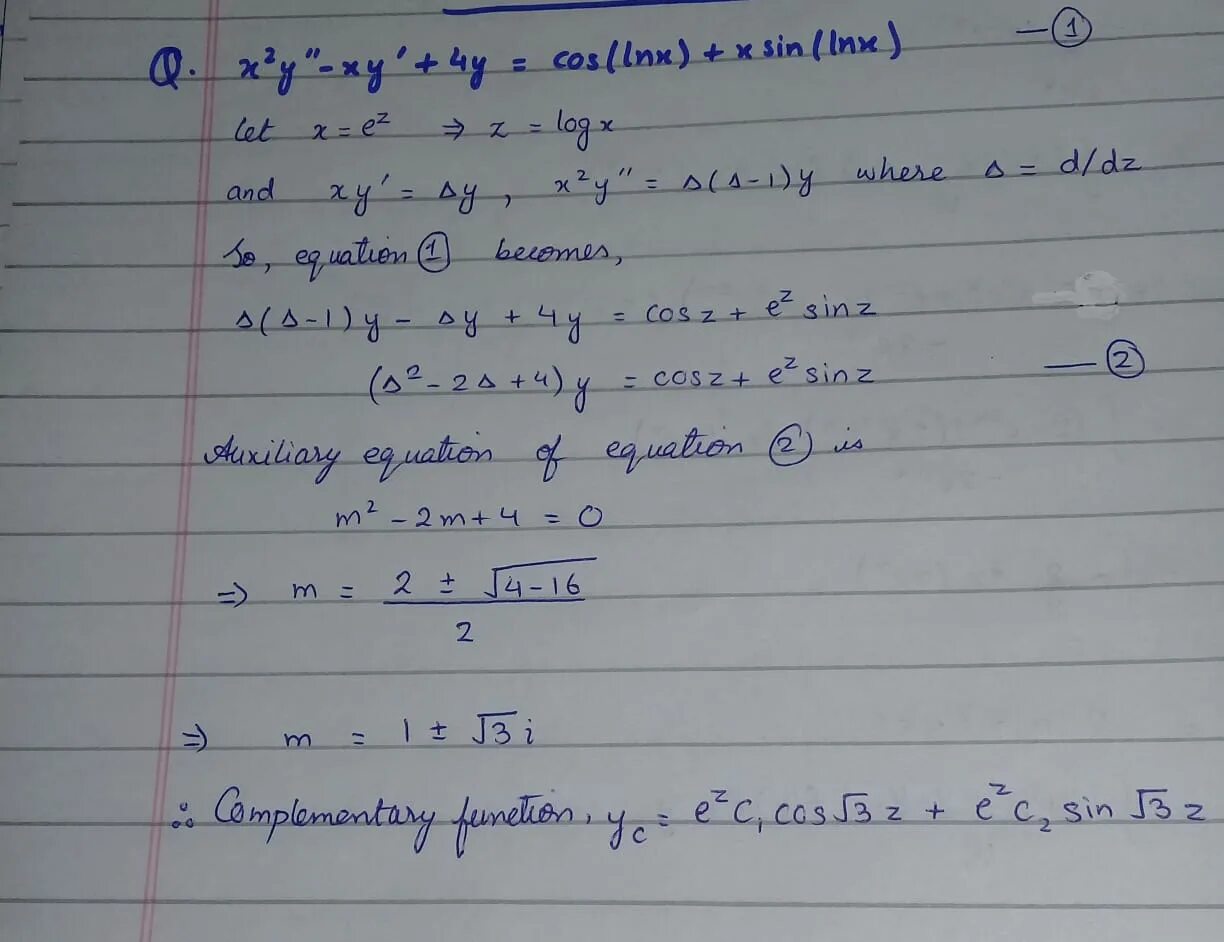 Q. x²y" - xy' + 4y = cos(lnx) + x sin(lnx) —①
let x = e^z ⇒ z = log x
and xy' = Δy , x²y" = Δ(Δ-1)y where Δ = d/dz
So, equation ① becomes,
Δ(Δ-1)y - Δy + 4y = cosz + e^z sinz
(Δ² - 2Δ + 4)y = cosz + e^z sinz —②
Auxiliary equation of equation ② is
m² - 2m + 4 = 0
⇒ m = (2 ± √(4-16))/2
⇒ m = 1 ± √3 i
∴ Complementary function, y_c = e^z C₁ cos√3 z + e^z C₂ sin √3 z